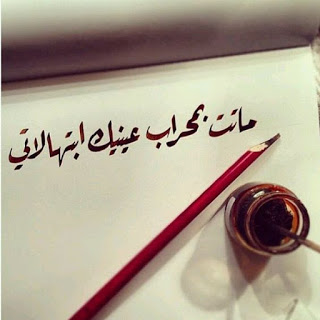 ماتت بمحراب عينيك ابتهالاتي